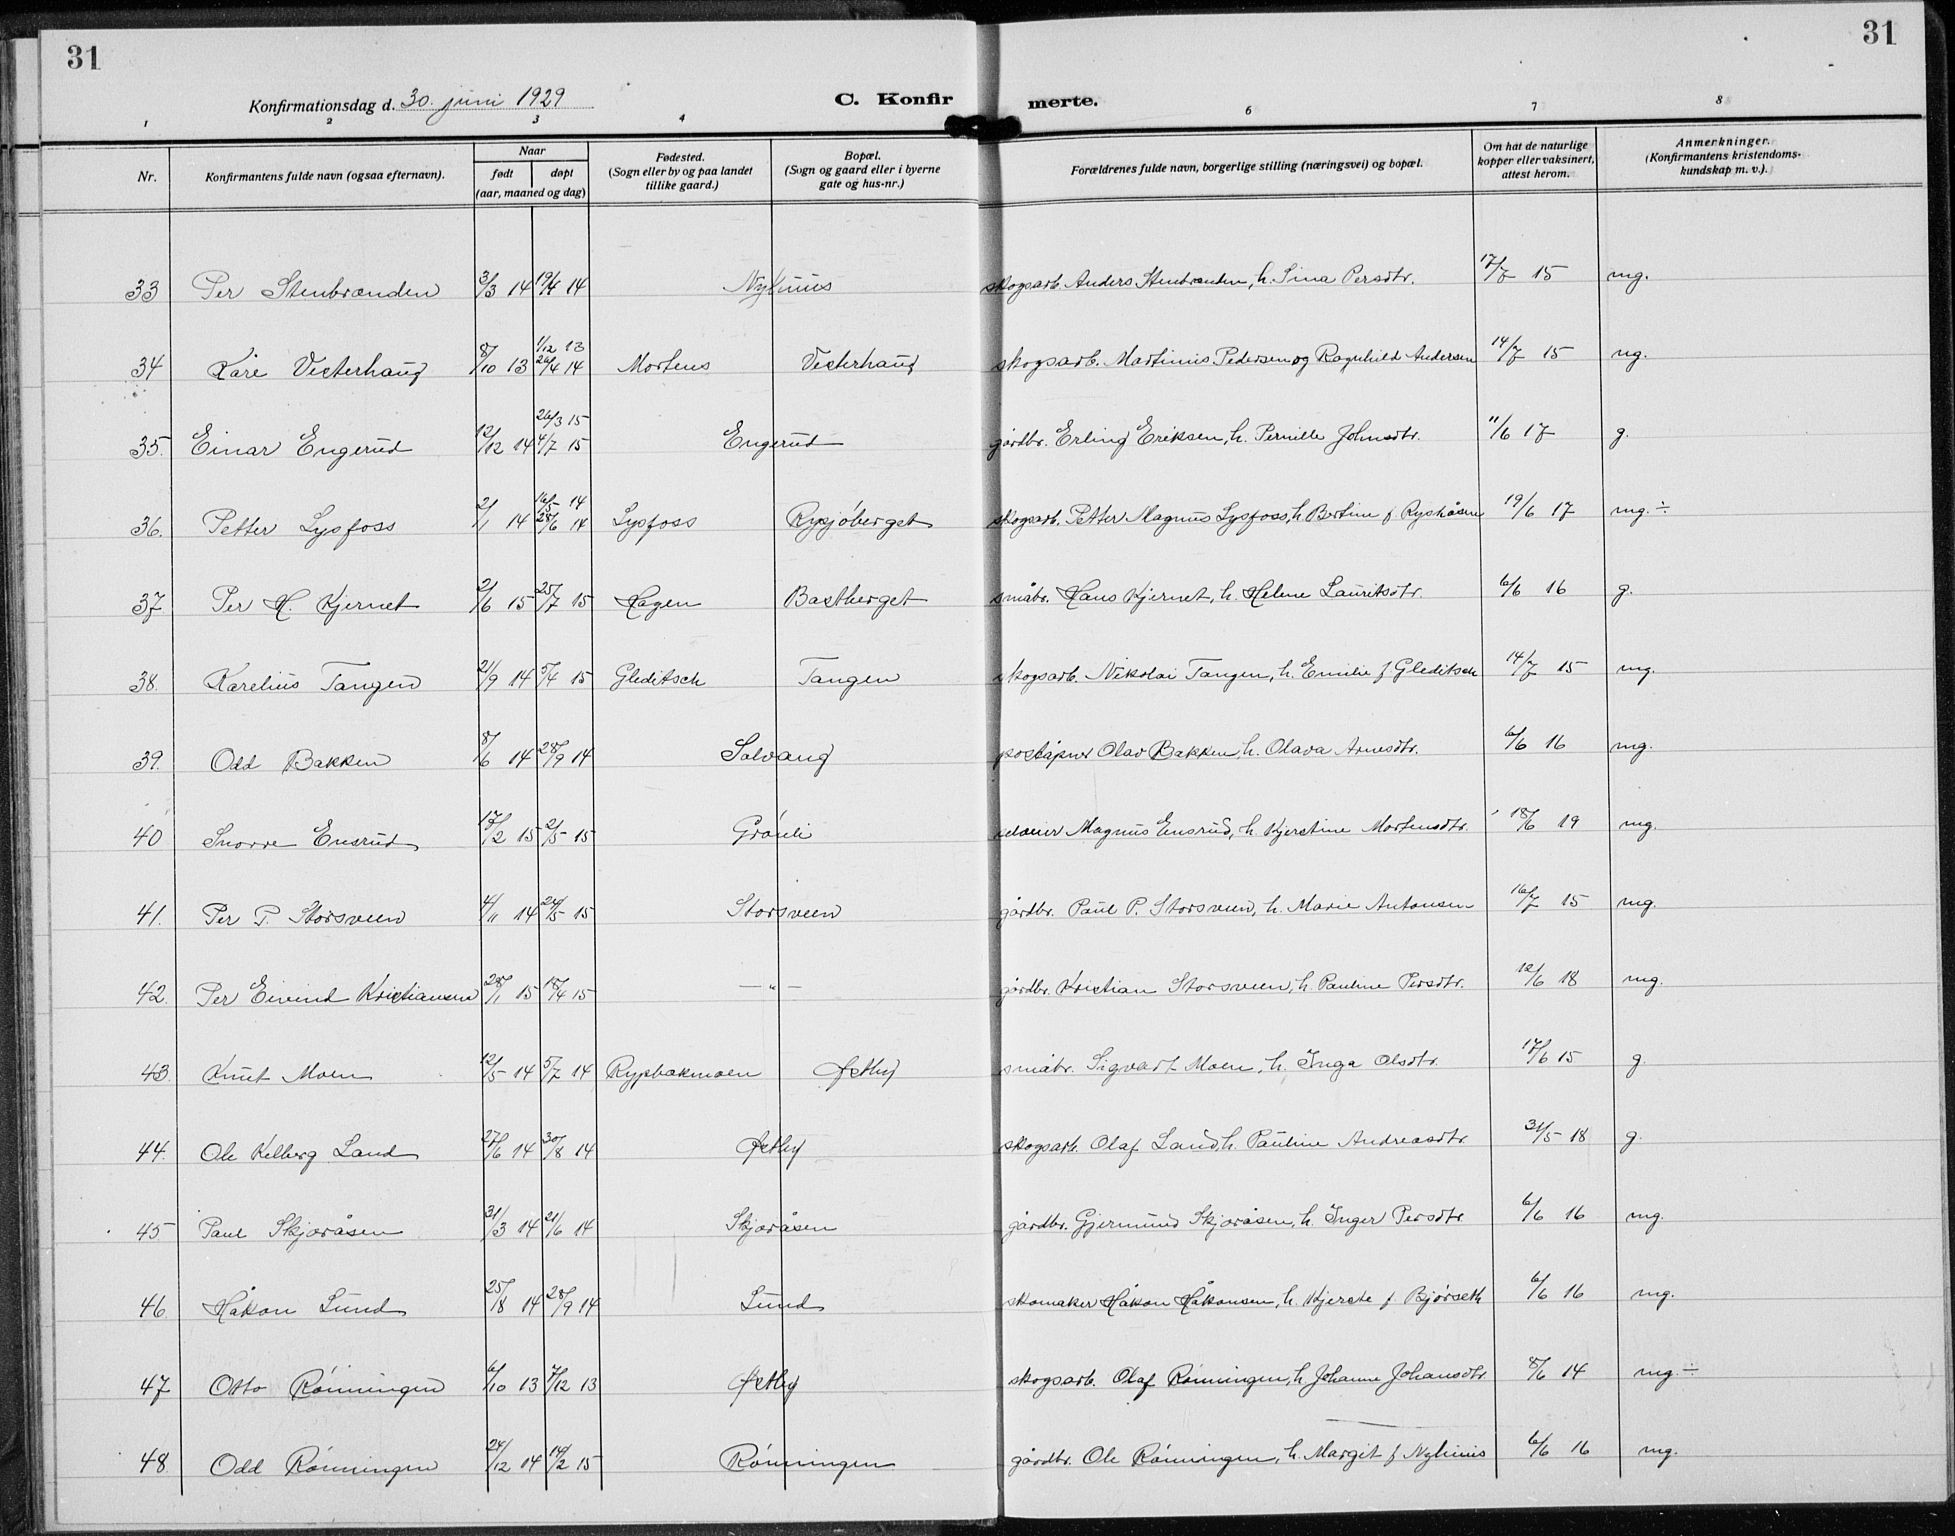 31
31
Konfirmationsdag d. 30. juni 1929
C. Konfir
merte.
1 2 3 4 6 7 8
Nr.
Konfirmantens fulde navn (ogsaa efternavn).
Naar
født
døpt
(aar, maaned og dag)
Fødested.
(Sogn eller by og paa landet
tillike gaard.)
Bopæl.
(Sogn og gaard eller i byerne
gate og hus-nr.)
Forældrenes fulde navn, borgerlige stilling (næringsvei) og bopæl.
Om hat de naturlige
kopper eller vaksinert,
attest herom.
Anmerkninger.
(Konfirmantens kristendoms-
kundskap m. v.).
33 Per Stenbrænden 3/3 14 19/4 14 Nyhuus skogsarb. Anders Stenbrænden, h. Sina Persdtr. 17/7 15 mg.
34 Kåre Vesterhaug 8/10 13 1/12 13 26/4 14 Mortens Vesterhaug skogsarb. Martinius Pedersen og Ragnhild Andersen 14/7 15 ng.
35. Einar Engerud 12/12 14 26/3 15 4/7 15 Engerud gårdbr. Erling Eriksen, h. Pernille Johnsdtr. 11/6 17 g.
36. Petter Lysfoss 2/1 14 16/5 14 28/6 14 Lysfoss Rysjøberget skogsarb. Petter Magnus Lysfoss, h. Bertine f. Ryskåsen 19/6 17 mg. ÷
37 Per H. Kjernet 2/6 15 25/7 15 Hagen Bastberget småbr. Hans Kjernet, h. Helene Lauritsdtr. 6/6 16 g.
38. Karelius Tangen 21/9 14 5/4 15 Gleditsch Tangen skogsarb. Nikolai Tangen, h. Emilie f. Gleditsch 14/7 15 mg.
39. Odd Bakken 8/6 14 28/9 14 Solvang poståpner Olav Bakken, h. Olava Arnesdtr. 6/6 16 mg.
40 Snorre Ensrud 17/2 15 2/5 15 Grønli Magnus Ensrud, h. Kjerstine Mortensdtr. 18/6 19 mg.
41. Per P. Storsveen 4/11 14 24/5 15 Storsveen gårdbr. Paul P. Storsveen, h. Marie Antonsen 16/7 15 mg.
42. Per Eivind Kristiansen 28/1 15 18/4 15 — " — gårdbr. Kristian Storsveen, h. Pauline Persdtr. 12/6 18 mg.
43. Knut Moen 12/5 14 5/7 14 Rypbakmoen Østby småbr. Sigvart Moen, h. Inga Olsdtr. 17/6 15 g.
44. Ole Kelberg Land 27/6 14 30/8 14 Østby skogsarb. Olaf Land, h. Pauline Andreasdtr. 31/5 18 g.
45 Paul Skjøråsen 31/3 14 21/6 14 Skjøråsen gårdbr. Gjermund Skjøråsen, h. Inger Persdtr 6/6 16 mg.
46. Håkon Lund 25/8 14 28/9 14 Lund skomaker Håkon Håkonsen, h. Kjerste f. Bjørseth 6/6 16 mg.
47 Otto Rønningen 6/10 13 7/12 13 Østby skogsarb. Olaf Rønningen, h. Johanne Johansdtr. 8/6 14 mg. ÷
48 Odd Rønningen 24/12 14 14/2 15 Rønningen gårdbr. Ole Rønningen, h. Margit f. Nyhuus 6/6 16 mg.